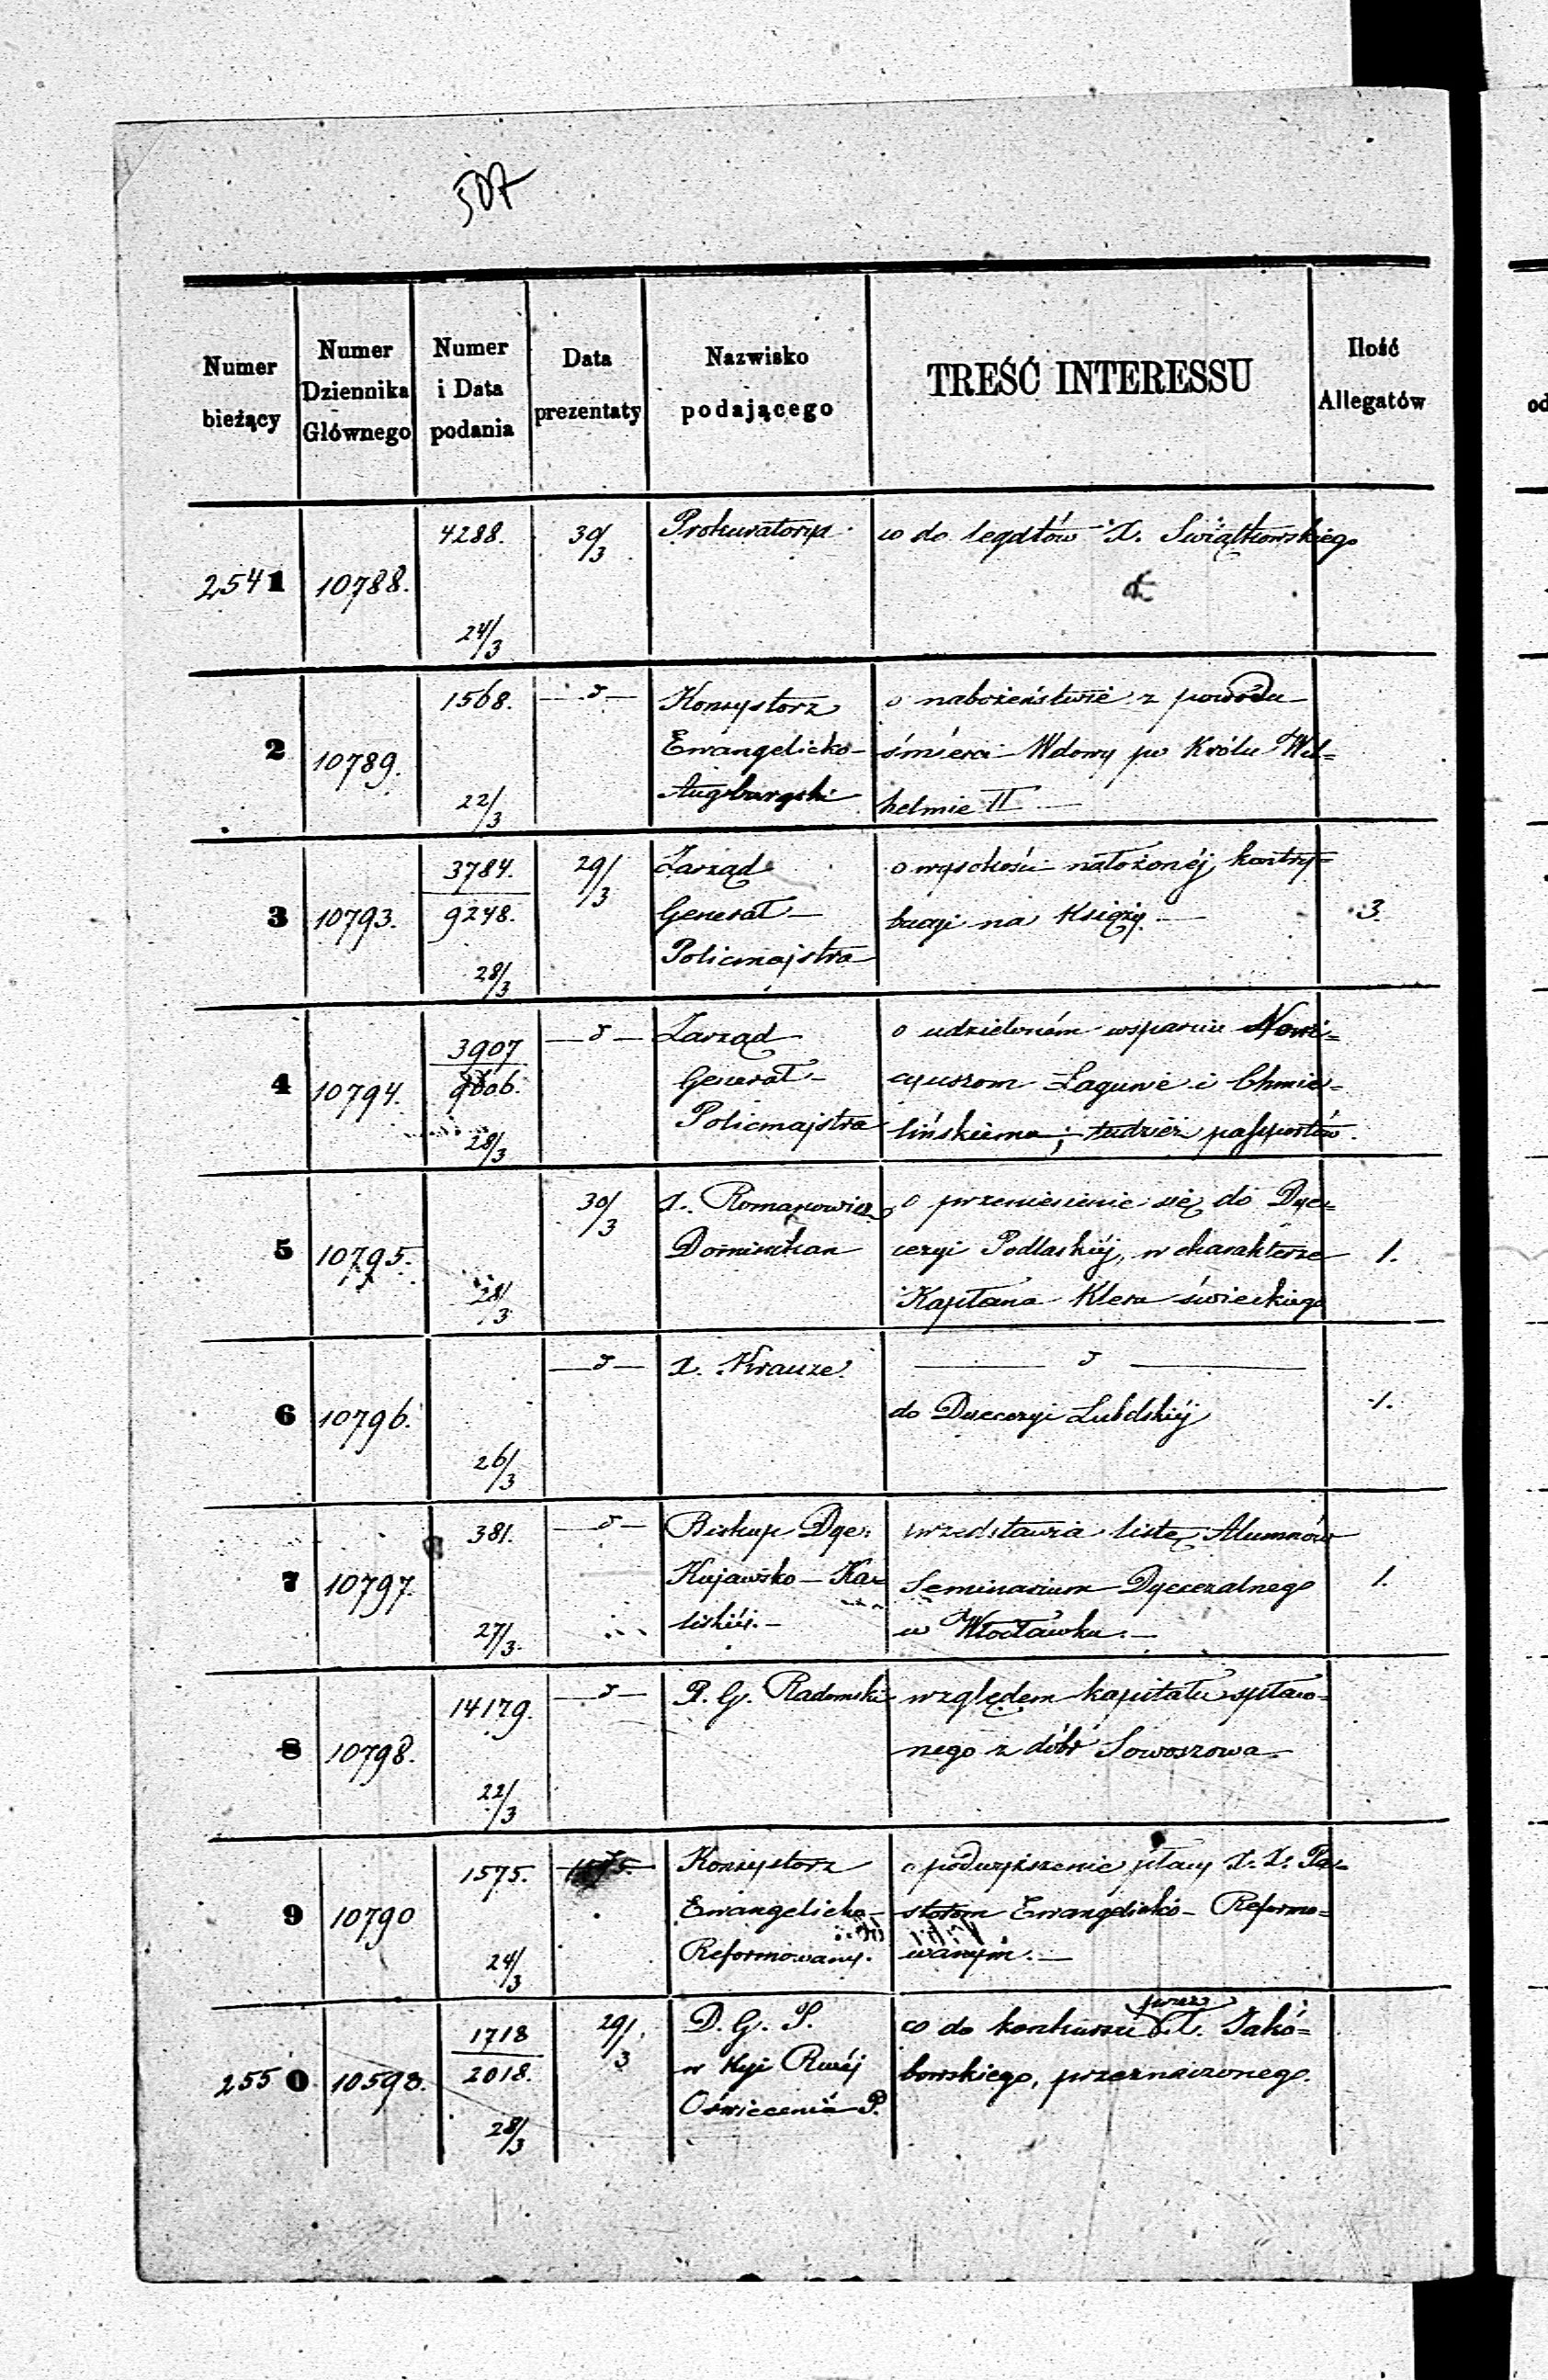 507
Numer bieżący
Numer Dziennika Głównego
Numer i Data podania
Data prezentaty
Nazwisko podającego
TREŚĆ INTERESSU
Ilość Allegatów
2541 10788. 4288. 24/3 30/3
Prokuratorya
co do legatów X. Swiątkowskiego
2 10789. 1568. 22/3
Konsystorz
Ewangelicko-
Augsburgski
o nabożeństwie z powodu
śmierci Wdowy po Królu Wil=
helmie II
3 10793. 3784. 9248. 28/3 29/3
Zarząd
Generał-
Policmajstra
o wysokości nałożonéj kontry=
bucyi na Księży.
3.
4 10794. 3907 9606. 28/3
Zarząd
Generał-
Policmajstra
o udzieloném wsparciu Nowi=
cyuszom Łagunie i Chmie-
lińskiemu; tudzież passportów.
5 10795. 28/3 30/3
X. Romanowicz
Dominikan
o przeniesienie się do Dye=
cezyi Podlaskiéj, w charakterze
Kapłana Kleru świeckiego
1.
6 10796. 26/3
X. Krauze.
do Dyecezyi Lubelskiéj
1.
7 10797. 381. 27/3.
Biskup Dye:
Kujawsko-Ka=
liskiéj.-
przedstawia listę Alumnów
Seminarium Dyecezalnego
w Włocławku.-
1.
8 10798. 14179. 22/3
R. G. Radomski
względem kapitału spławo-
nego z dóbr Sowoszowa
9 10790 1575. 24/3 1575.
Konsystorz
Ewangelicko-
Reformowany.
o podwyższenie płacy X. X. Pa=
storom Ewangelicko- Reformo=
wanym.-
2550 10598. 1718 2018. 28/3 29/3
D. G. S.
w Kyi Rwéj
Oświecenia P.
przez
co do konkursu X. Jakó=
bowskiego, przeznaczonego.